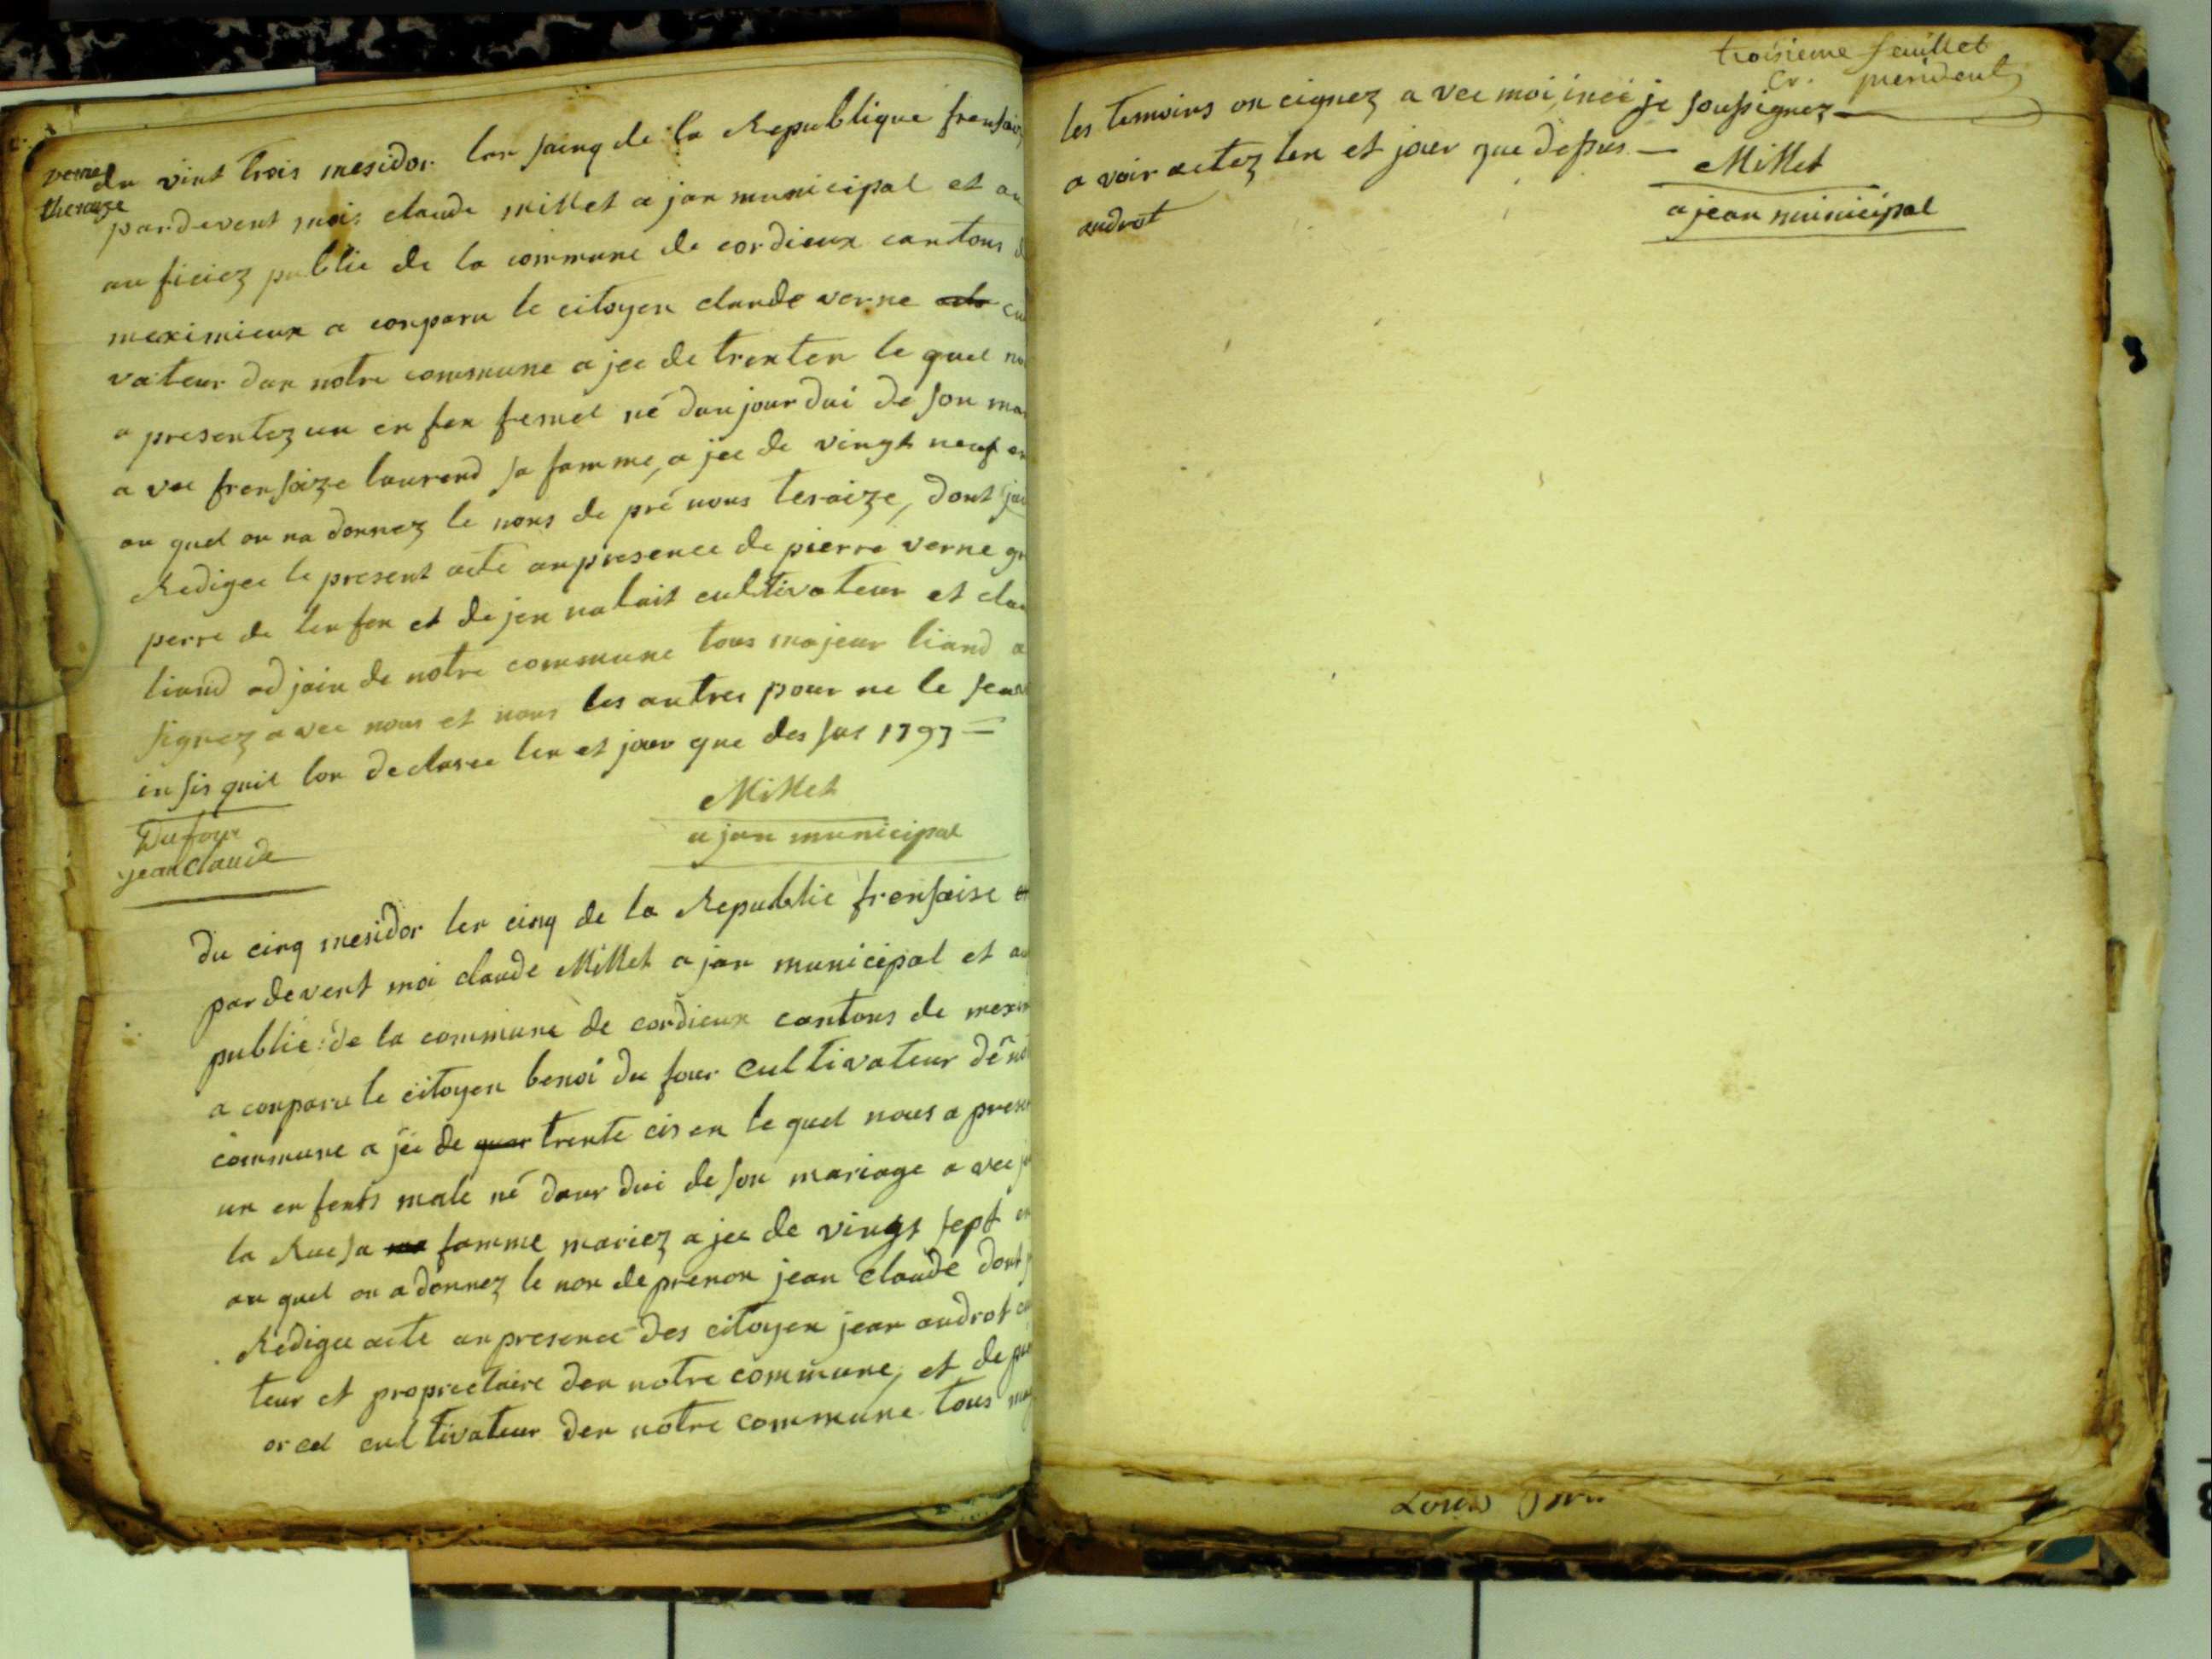 verne
theraize
du vint trois mesidor lan saing de la Republique fransais
pardevent mois claude millet a jan municipal et au
au ficiez public de la commune de cordieux cantons d
meximieux a conparu le citoyen claude verne cu
vateur dan notre commune a jee de trenten le quel no
a presentez un en fen femel né daujour dui de son ma
a vec fransoize laurend sa famme, a jee de vingt neuf en
au quel on na donnez le nons de pré nous teraize, dont jai
Redigee le present acte anpresence de pierre verne gr
perre de lenfen et de jen nalait cultivateur et clau
liand adjoin de notre commune tous majeur liand a
signez avec nous et nons les autres pour ne le sca
insis quil lon declaree len et jour que des sus 1797
Millet
a jan municipal
Dufour
jean claude
Du cinq mesidor len cinq de la Republic fransaise
par devent moi claude Millet a jan municipal et au
public de la commune de cordieux cantons de mexim
a conparu le citoyen benoi du four cultivateur dé no
commune a jée de quar trente cis en le quel nous a presen
un en fents male né daur dui de son mariage a vec
la Rue sa famme mariez a jee de vingt sept en
au quel on a donnez le non de prenon jean claude dont
Redigee acte anpresence des citoyen jean audrot cu
teur et proprietaire den notre commune, et de
orcel cultivateur den notre commune tous ma
troisieme feuillet
president
les temoins on cignez a vec moi, incé je soussignez
a voir actez len et jour que dessus
Millet
a jean municipal
audrot
Louis